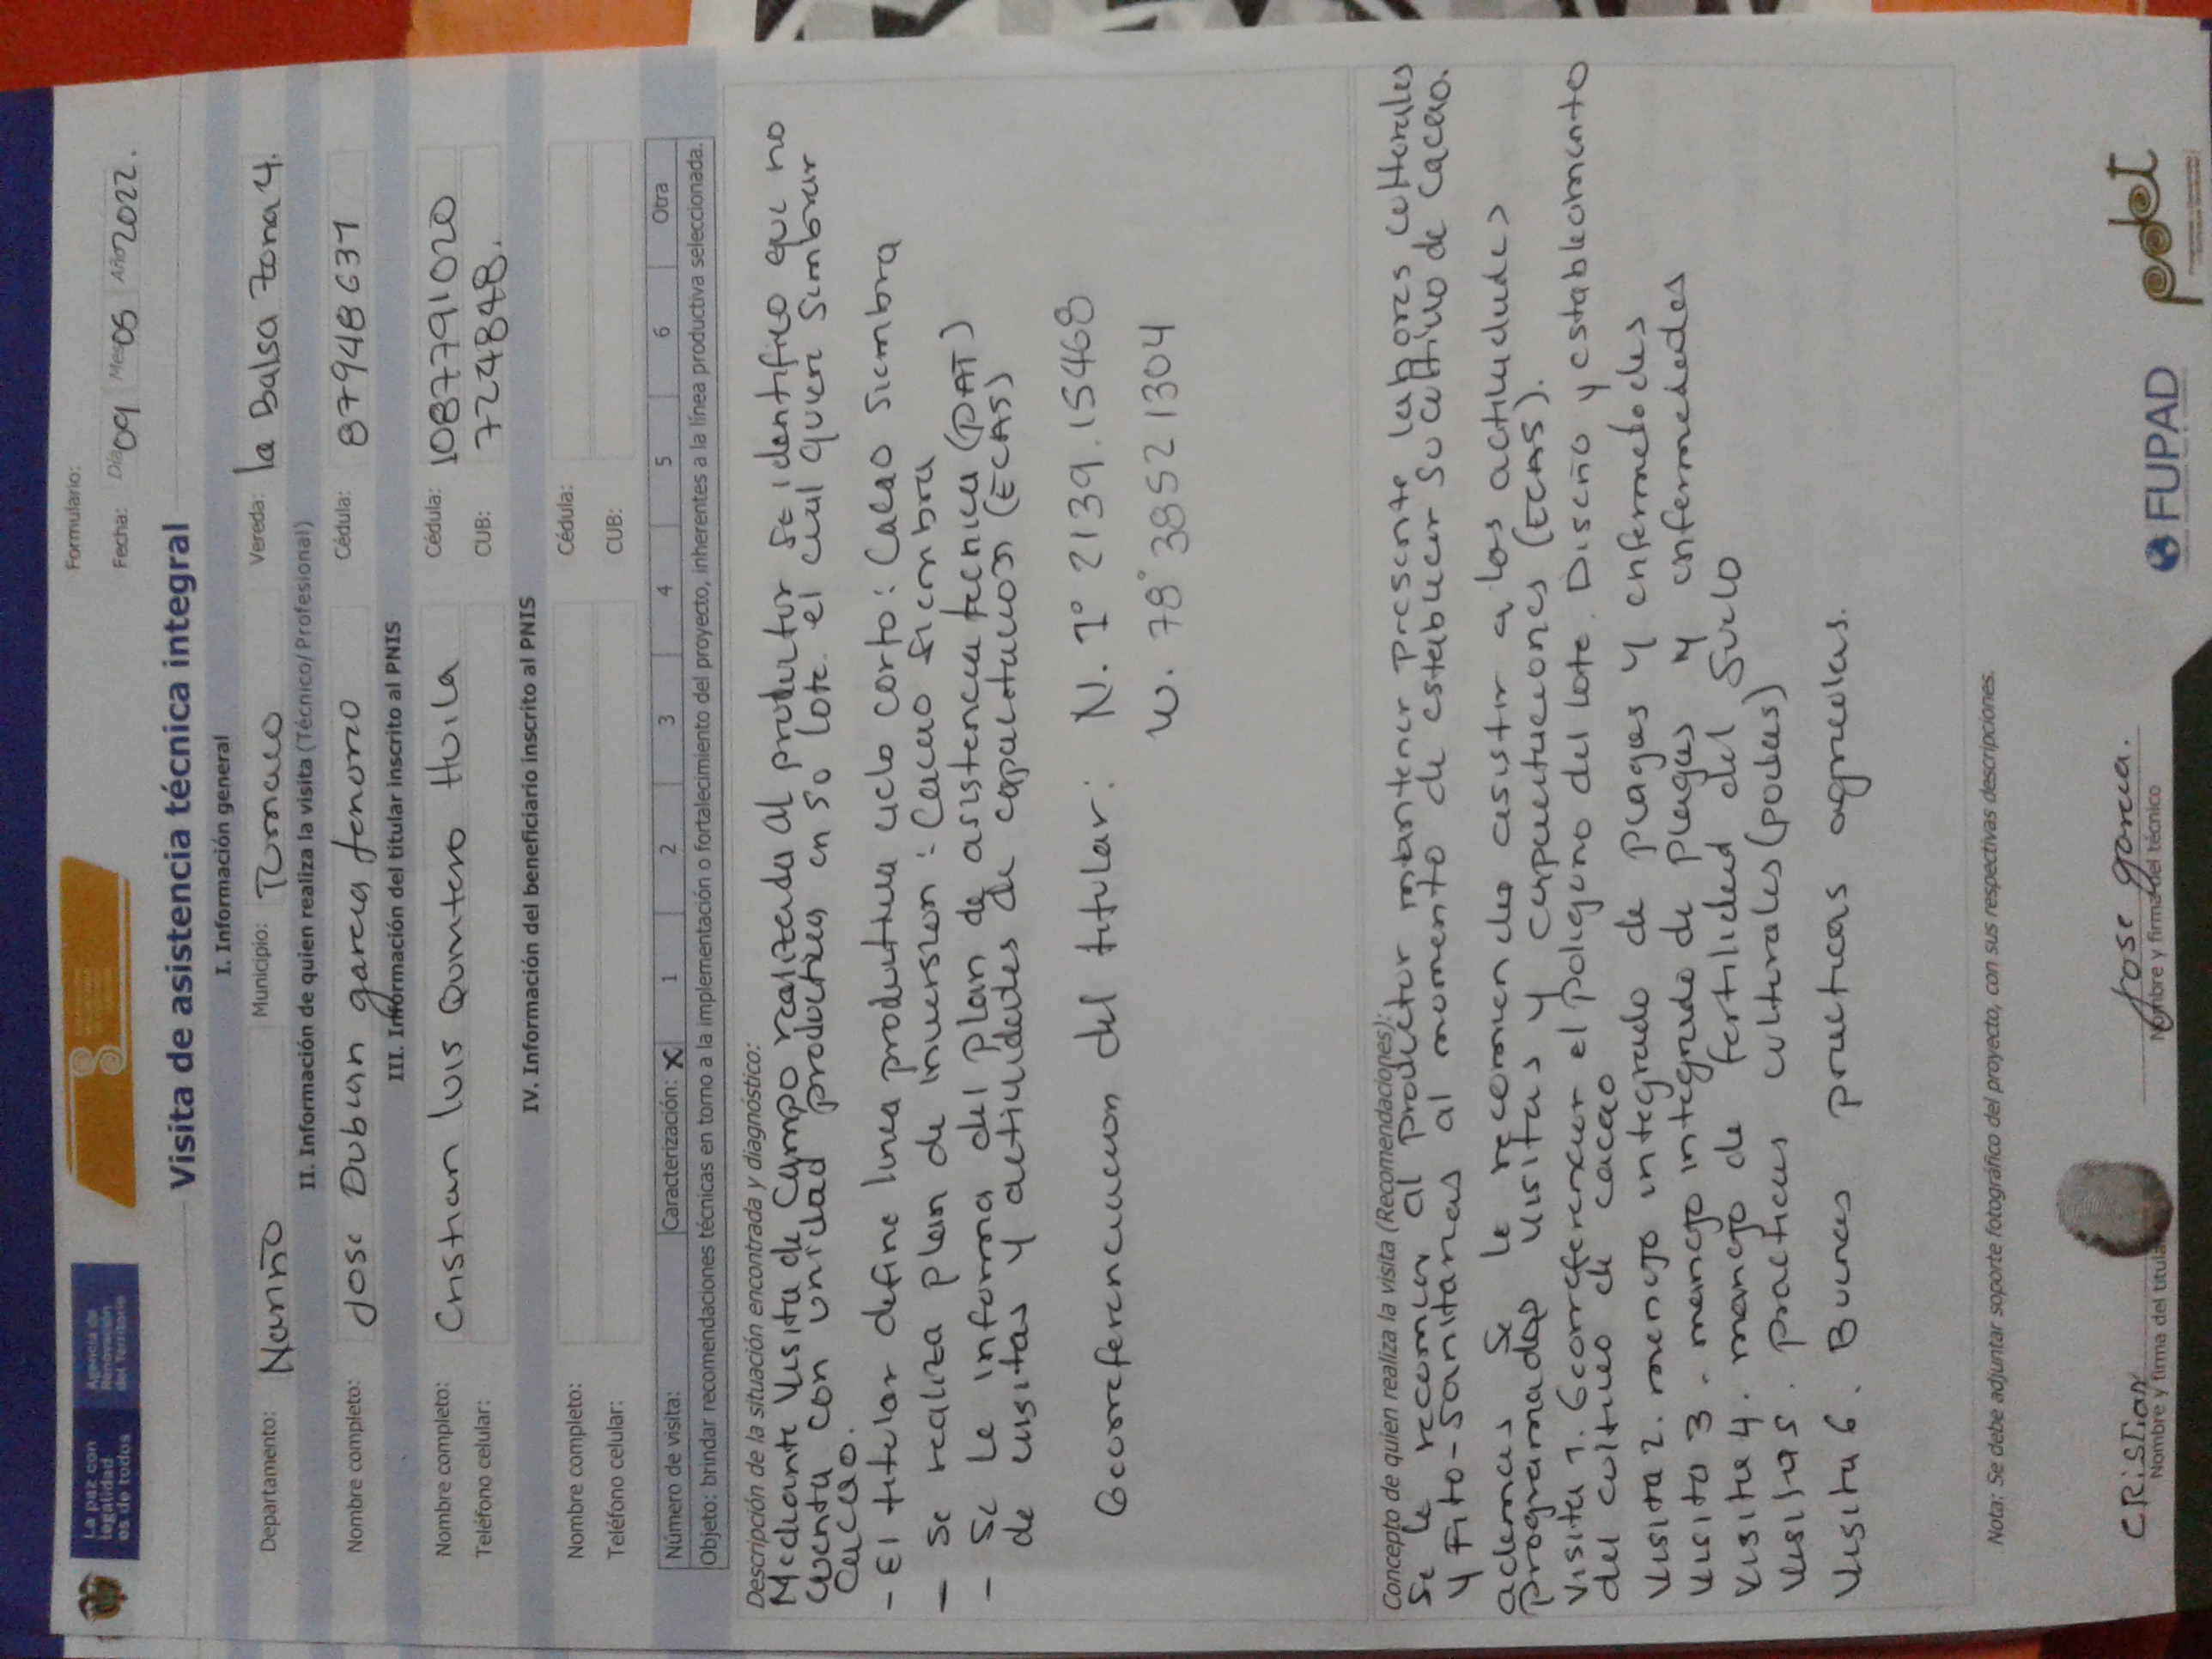 La paz con
legalidad
es de todos
Agencia de
Renovación
del Territorio
Formulario:
Fecha: Día 09 Mes 05 Año 2022.
Visita de asistencia técnica integral
I. Información general
Departamento: Nariño Municipio: Tumaco Vereda: la Balsa zona 4.
II. Información de quien realiza la visita (Técnico/Profesional)
Nombre completo: Jose Duban garcia tenorio Cédula: 87948631
III. Información del titular inscrito al PNIS
Nombre completo: Cristian luis Quintero Huila Cédula: 1087791020
Teléfono celular: CUB: 724848.
IV. Información del beneficiario inscrito al PNIS
Nombre completo: Cédula:
Teléfono celular: CUB:
Número de visita: Caracterización: X 1 2 3 4 5 6 Otra
Objeto: brindar recomendaciones técnicas en torno a la implementación o fortalecimiento del proyecto, inherentes a la línea productiva seleccionada.
Descripción de la situación encontrada y diagnóstico:
Mediante visita de campo realizada al productor se identifico que no
cuenta con unidad productiva en so lote. el cual quiere simbrar
cacao.
- El titular define linea productiva ciclo corto: Cacao siembra
- se realiza plan de inversion: Cacao siembra
- Se le informa del plan de asistencia tecnica (PAT)
de visitas y actividades de capacitacion (ECAS)
Georreferenciacion del titular: N. 1° 2139.15468
W. 78° 38521304
Concepto de quien realiza la visita (Recomendaciones):
Se le recomien al productor mantener presente labores culturales
y Fito-sanitarias al momento de establecer su cultivo de cacao.
ademas se le recomienda asistir a las actividades
programadas visitas y capacitaciones (ECAS).
Visita 1. Georreferenciar el poligono del lote. Diseño y establecimiento
del cultivo de cacao
Visita 2. manejo integrado de plagas y enfermedades
Visita 3. manejo integrado de plagas y enfermedades
Visita 4. manejo de fertilidad del suelo
Visita 5. practicas culturales (podas)
Visita 6. Buenas practicas agricolas.
Nota: Se debe adjuntar soporte fotográfico del proyecto, con sus respectivas descripciones.
CRISTIAN
Nombre y firma del titular
Jose garcia.
Nombre y firma del técnico
FUPAD
pdet